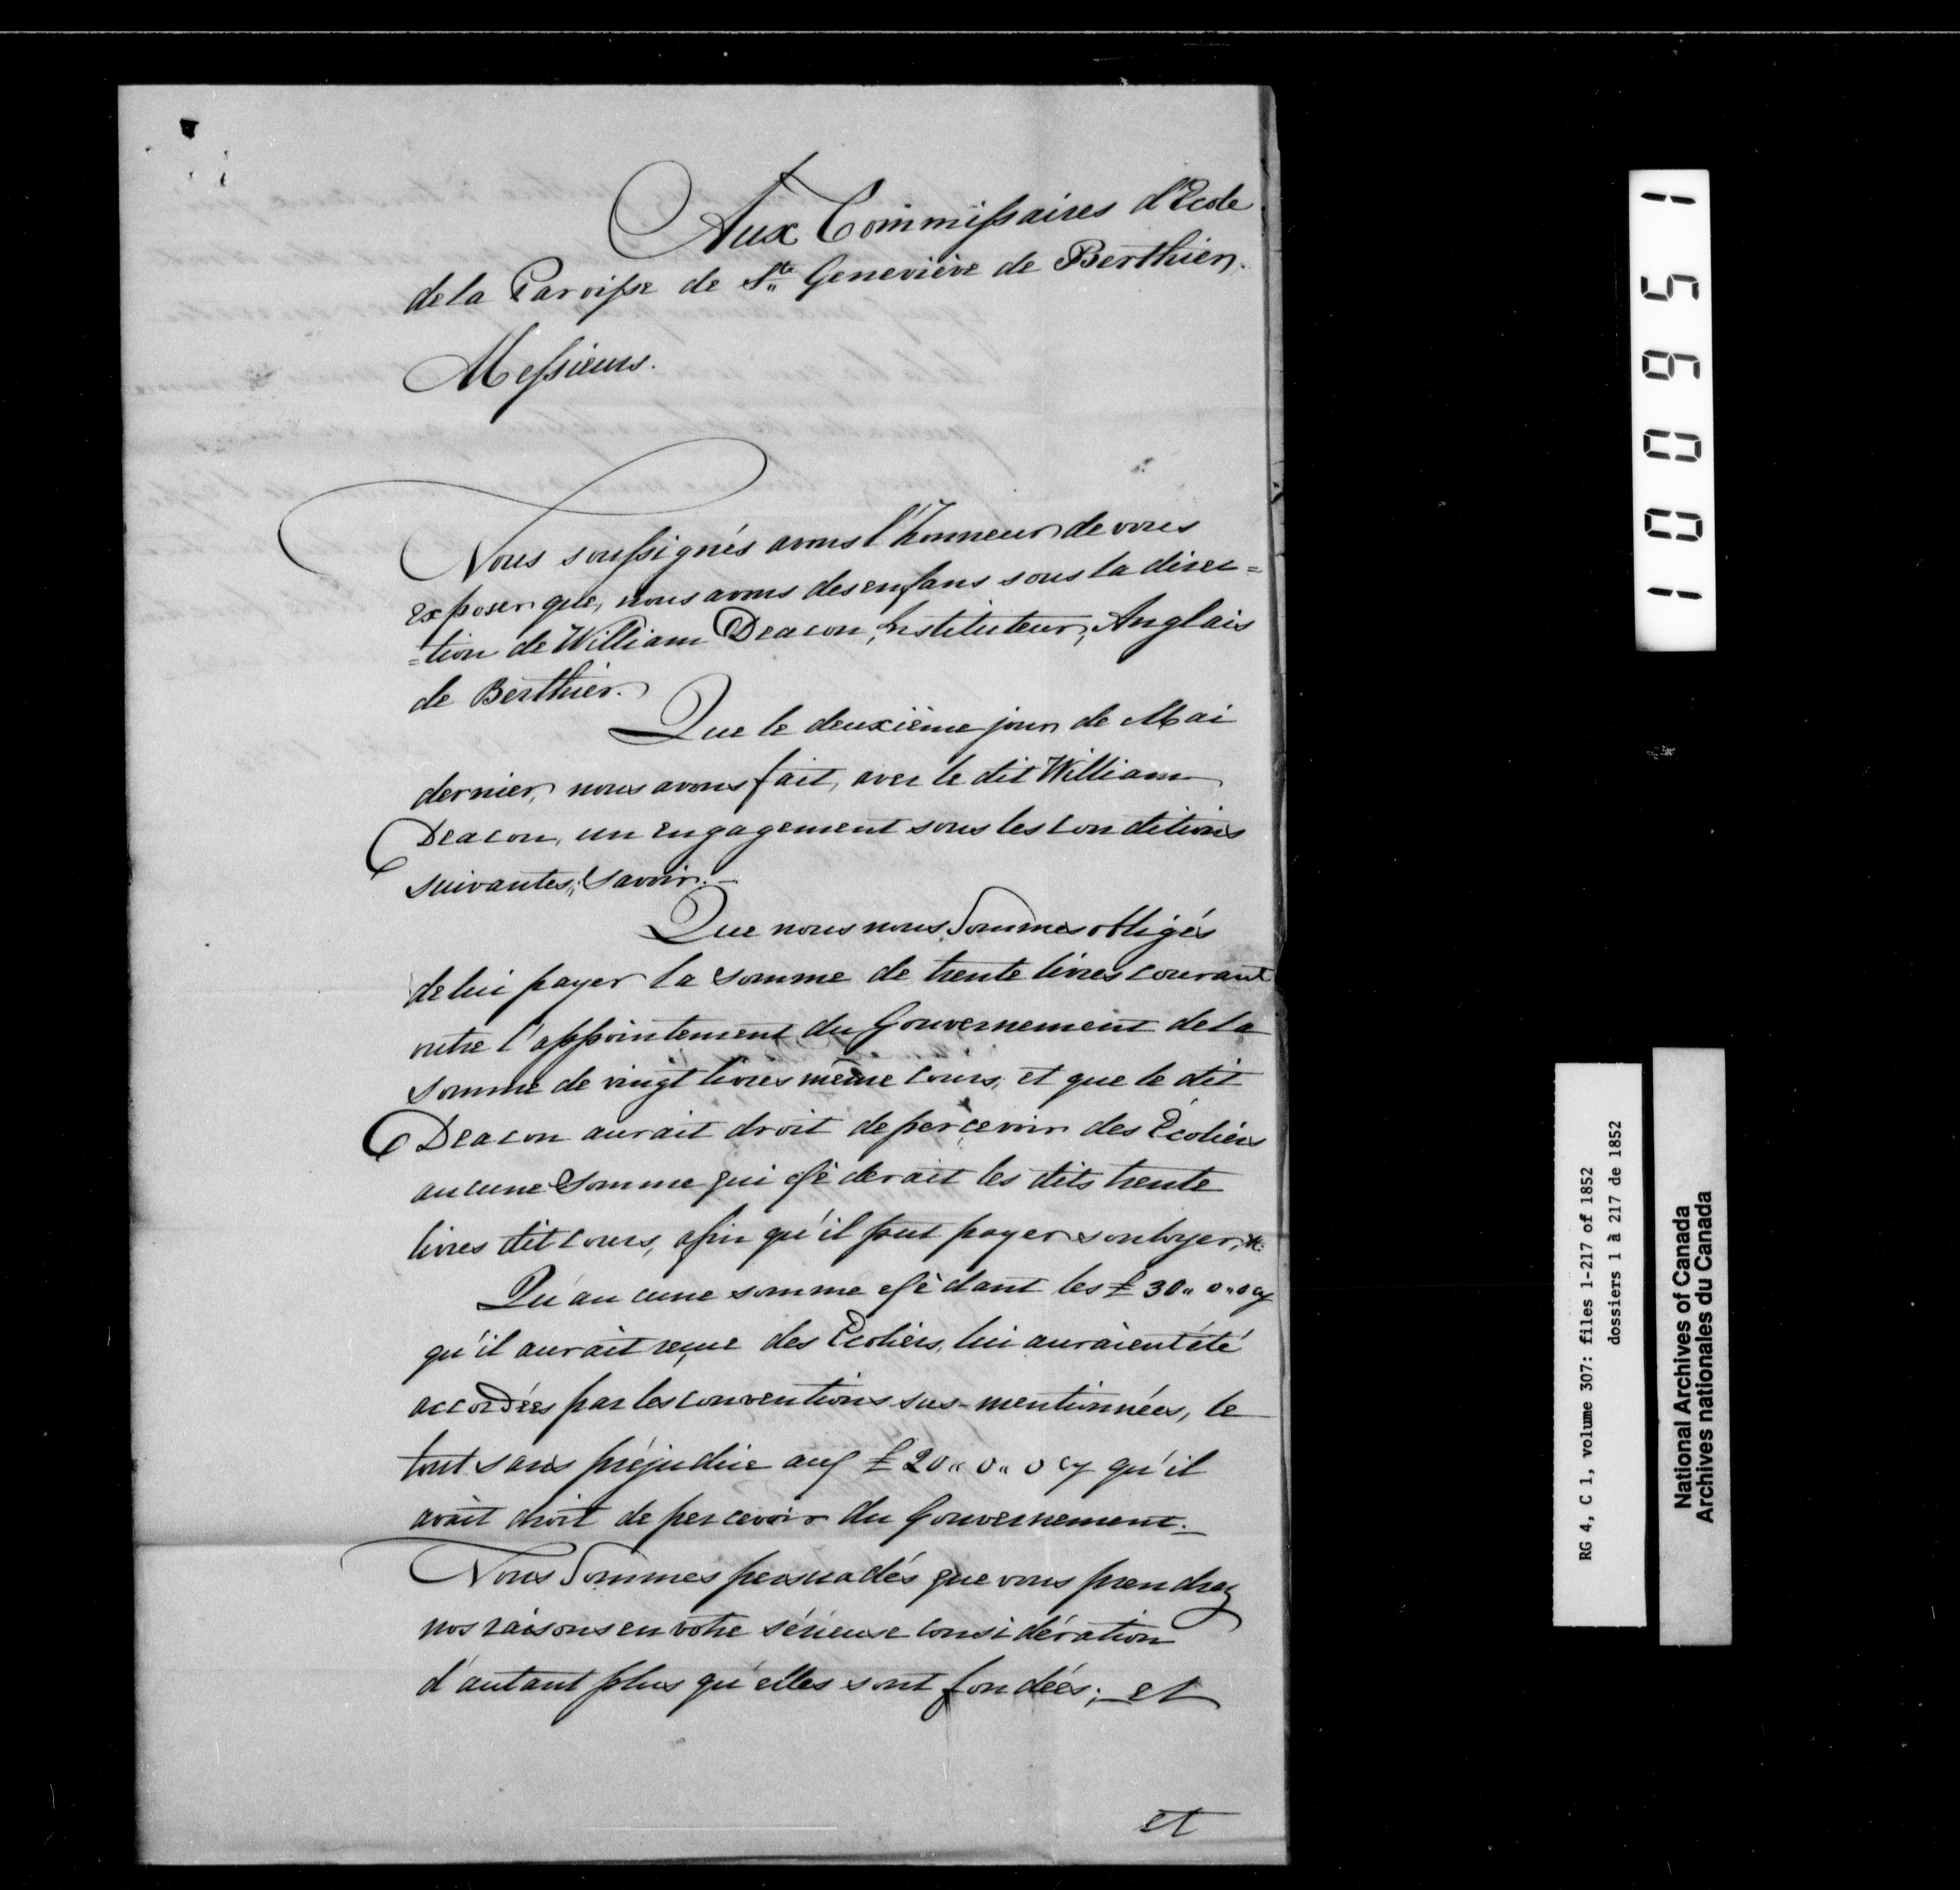 Aux Commissaires d'Ecole
de la Paroisse de Ste Geneviève de Berthier.
Messieurs.
Nous soussignés avons l'honneur de vous
exposer que, nous avons des enfans sous la direc=
=tion de William Deacon, Instituteur, Anglais
de Berthier.
Que le deuxième jour de Mai
dernier, nous avons fait, avec le dit William
Deacon, un engagement sous les conditions
suivantes, savoir.—
Que nous nous sommes obligés
de lui payer la somme de trente livres courant
outre l'appointement du Gouvernement de la
somme de vingt livres même cours, et que le dit
Deacon aurait droit de perçevoir des Écoliers
aucune somme qui exéderait les dits trente
livres dit cours, afin qu'il put payer son loyer, &c.
Qu'aucune somme exédant les £30,, 0,, 0 cy
qu'il aurait reçue des Ecoliers, lui auraient été
accordées par les conventions sus-mentionnées, le
tout sans préjudice aux £20,, 0,, 0 cy qu'il
avait droit de percevoir du Gouvernement.—
Nous sommes persuadés que vous prendrez
nos raisons en votre sérieuse considération
d'autant plus qu'elles sont fondées; et
et
100951
RG 4, C 1, volume 307: files 1-217 of 1852
dossiers 1 à 217 de 1852
National Archives of Canada
Archives nationales du Canada